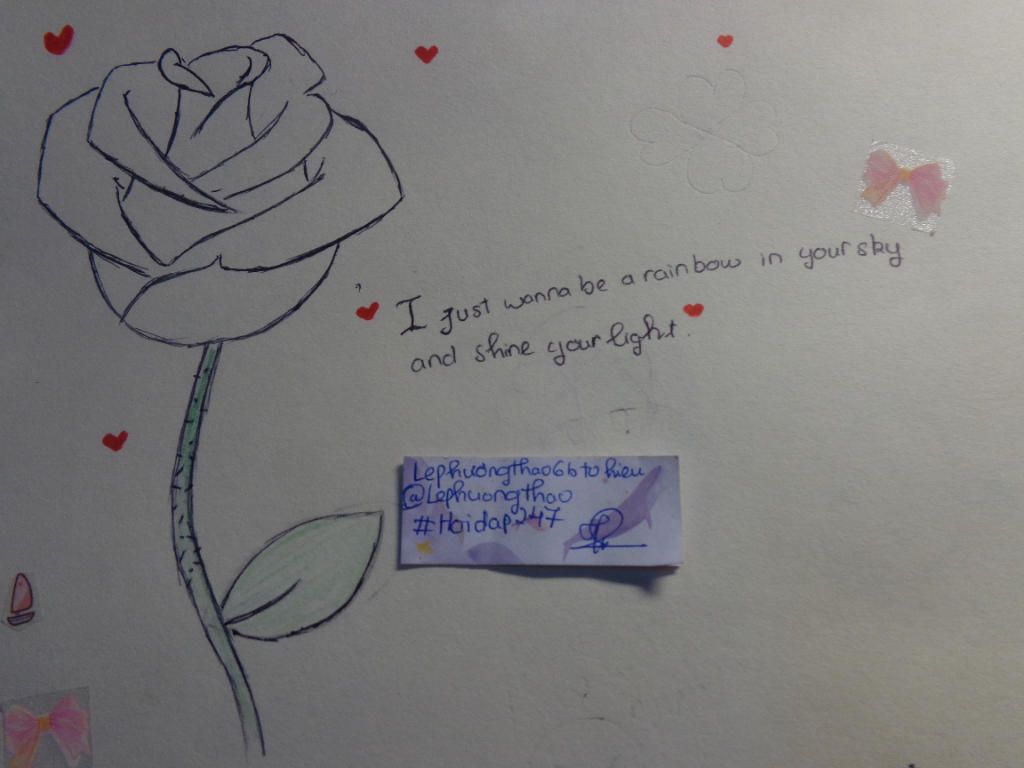 I just wanna be a rainbow in your sky
and shine your light.
Lephuongthao6b to hieu
@Lephuongthao
#Hoidap247